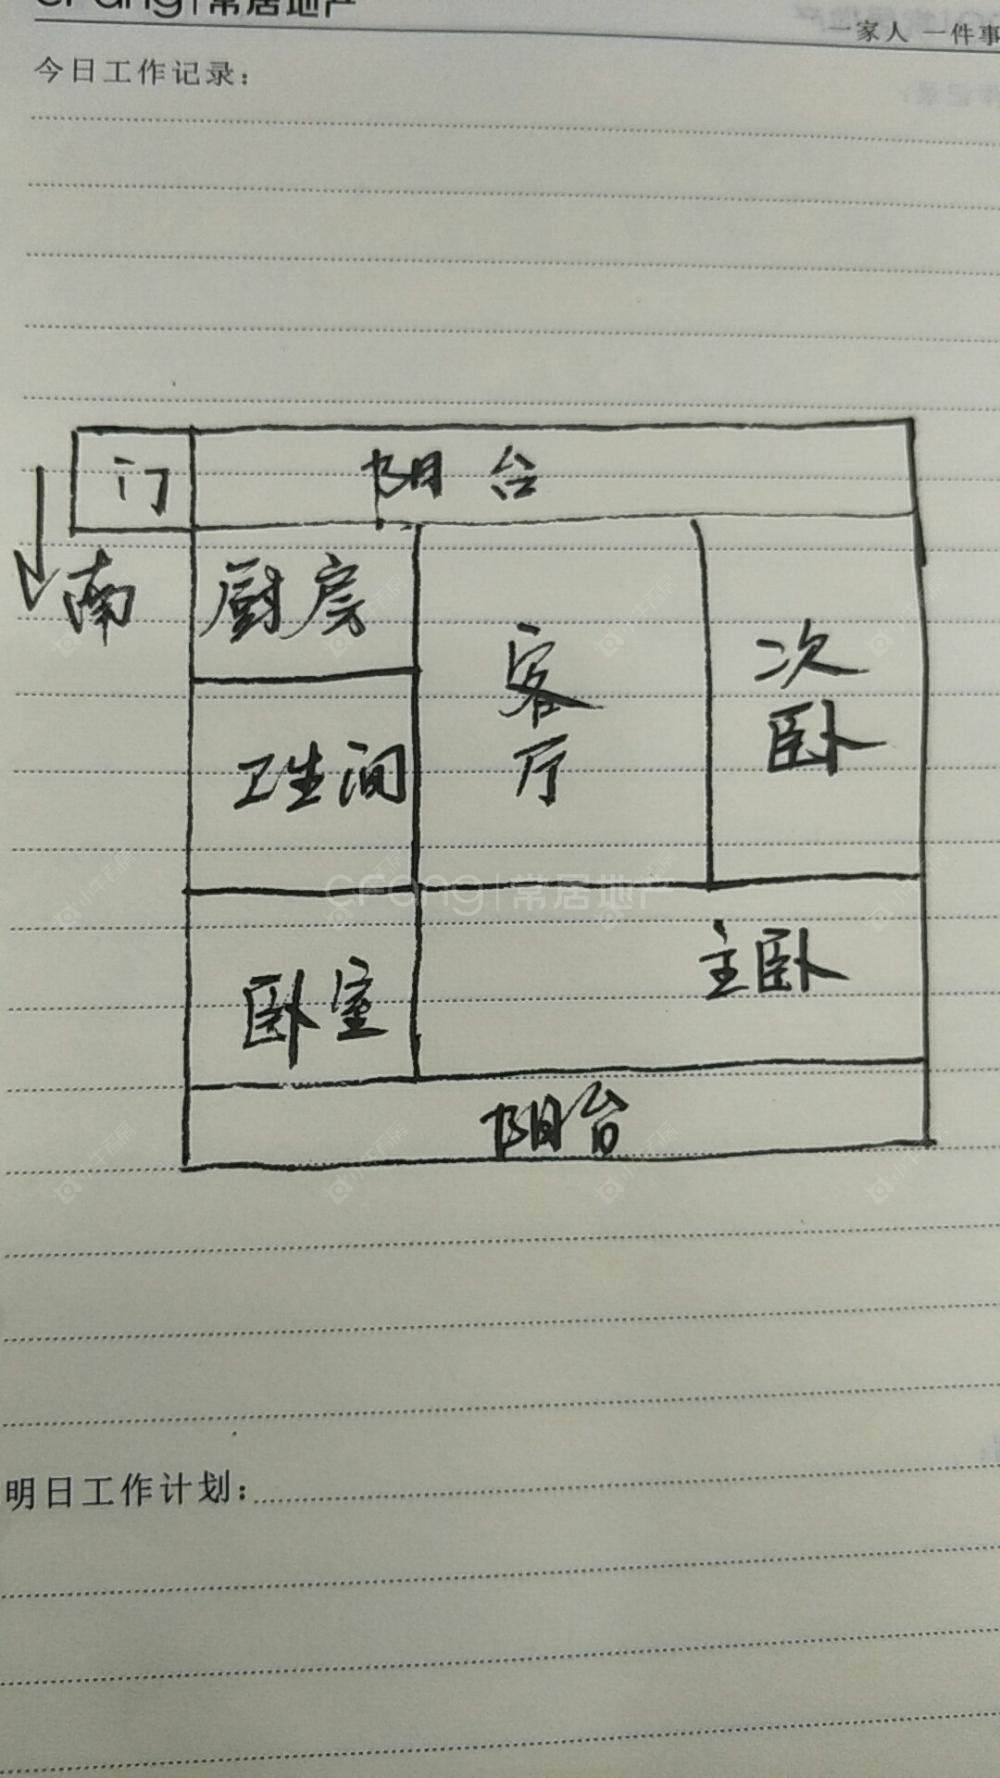 CFang|常居地产
一家人 一件事
今日工作记录：
门 阳台
南
厨房
客厅
次卧
卫生间
CFang|常居地产
主卧
卧室
阳台
明日工作计划：